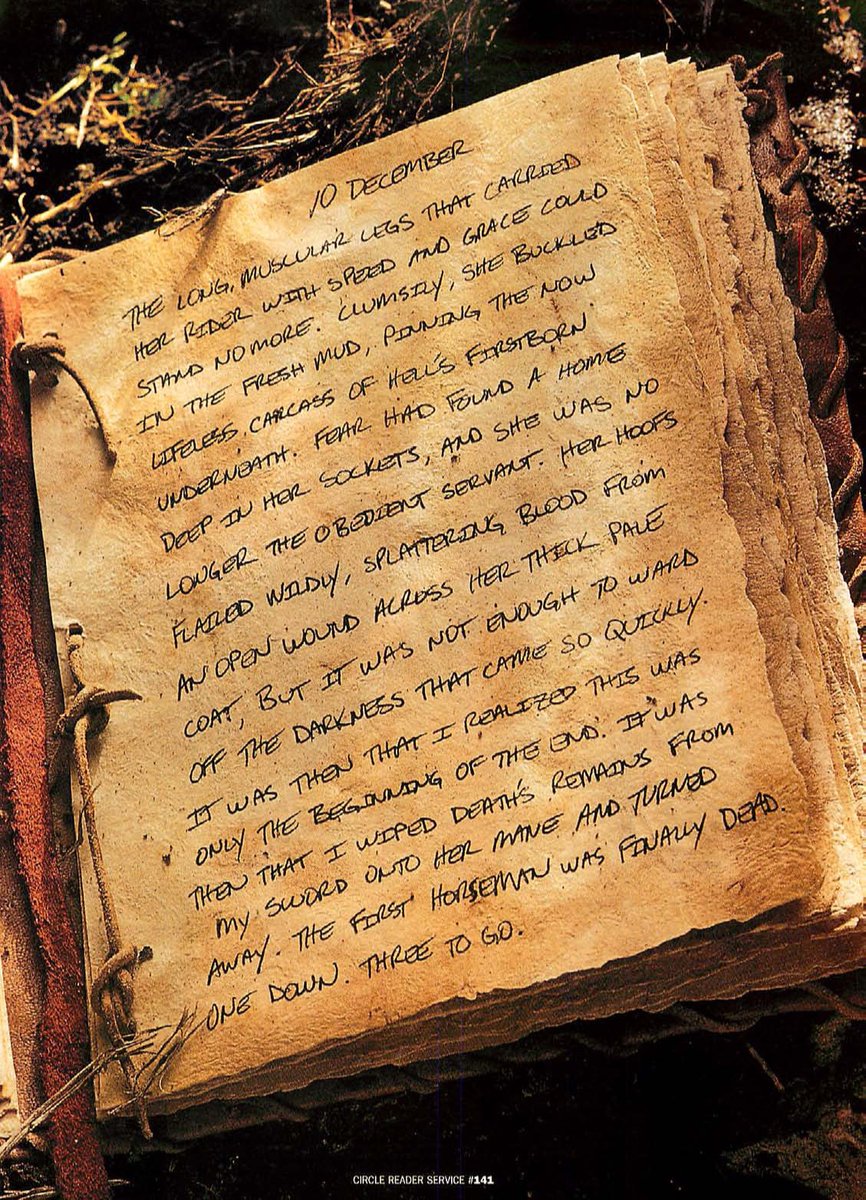 10 DECEMBER
THE LONG, MUSCULAR LEGS THAT CARRIED
HER RIDER WITH SPEED AND GRACE COULD
STAND NO MORE. CLUMSILY, SHE BUCKLED
IN THE FRESH MUD, PINNING THE NOW
LIFELESS CARCASS OF HELL'S FIRSTBORN
UNDERNEATH. FEAR HAD FOUND A HOME
DEEP IN HER SOCKETS, AND SHE WAS NO
LONGER THE OBEDIENT SERVANT. HER HOOFS
FLAILED WILDLY, SPLATTERING BLOOD FROM
AN OPEN WOUND ACROSS HER THICK PALE
COAT, BUT IT WAS NOT ENOUGH TO WARD
OFF THE DARKNESS THAT CAME SO QUICKLY.
IT WAS THEN THAT I REALIZED THIS WAS
ONLY THE BEGINNING OF THE END. IT WAS
THEN THAT I WIPED DEATH'S REMAINS FROM
MY SWORD ONTO HER MANE AND TURNED
AWAY. THE FIRST HORSEMAN WAS FINALLY DEAD.
ONE DOWN. THREE TO GO.
CIRCLE READER SERVICE #141